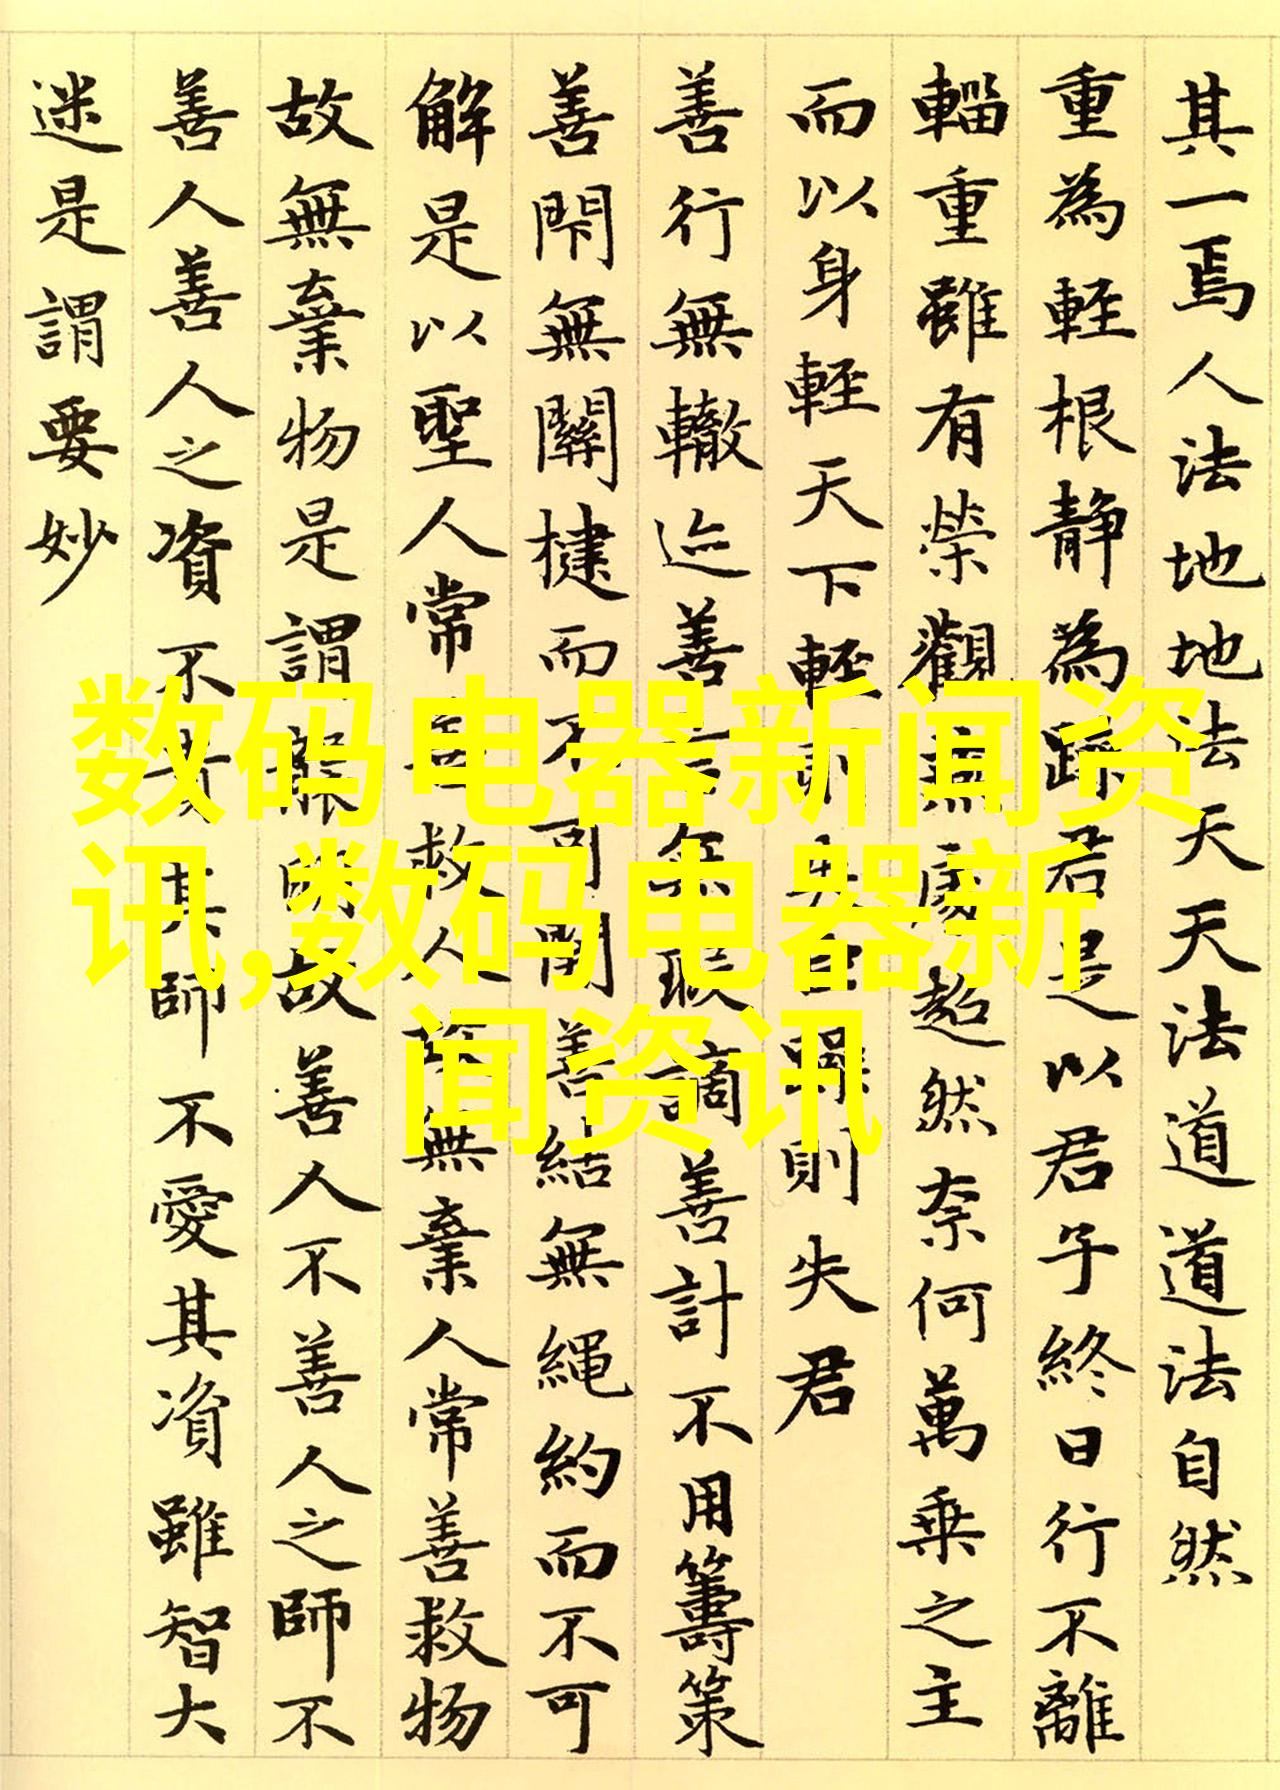 其一焉人法地地法天天法道道法自然
重為輕根静為躁君是以君子終日行不離
輜重雖有榮觀燕處超然奈何萬乘之主
而以身輕天下輕則失臣躁則失君
善行無轍迹善言無瑕謫善計不用籌策
善閇無關楗而不可開善結無繩約而不可
解是以聖人常善救人故無棄人常善救物
故無棄物是謂襲明故善人不善人之師不
善人善人之資不貴其師不愛其資雖智大
迷是謂要妙
数码电器新闻资
讯,数码电器新
闻资讯